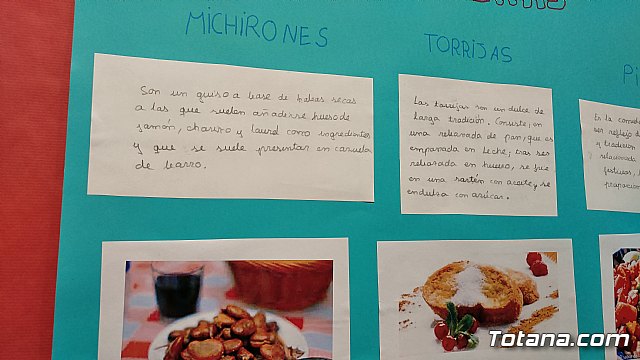 MICHIRONES
Son un guiso a base de habas secas
a las que suelen añadirse hueso de
jamón, chorizo y laurel como ingredientes
y que se suele presentar en cazuela
de barro.
TORRIJAS
Las torrijas son un dulce de
larga tradición. Consiste, en
una rebanada de pan, que es
empapada en leche, tras ser
rebozada en huevo, se fríe
en una sartén con aceite y se
endulza con azúcar.
Pi
En la comida
ser reflejo d
y tradición
relacionada
festivos,
preparación
Totana.com